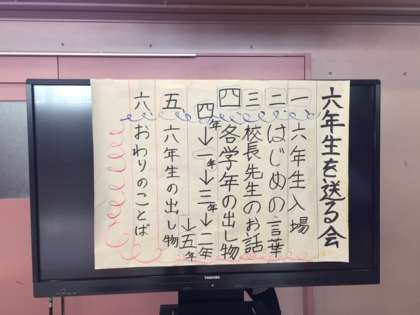 六年生を送る会
一、六年生入場
二、はじめの言葉
三、校長先生のお話
四、各学年の出し物
四年→一年→三年→二年
→五年
五、六年生の出し物
六、おわりのことば
TOSHIBA